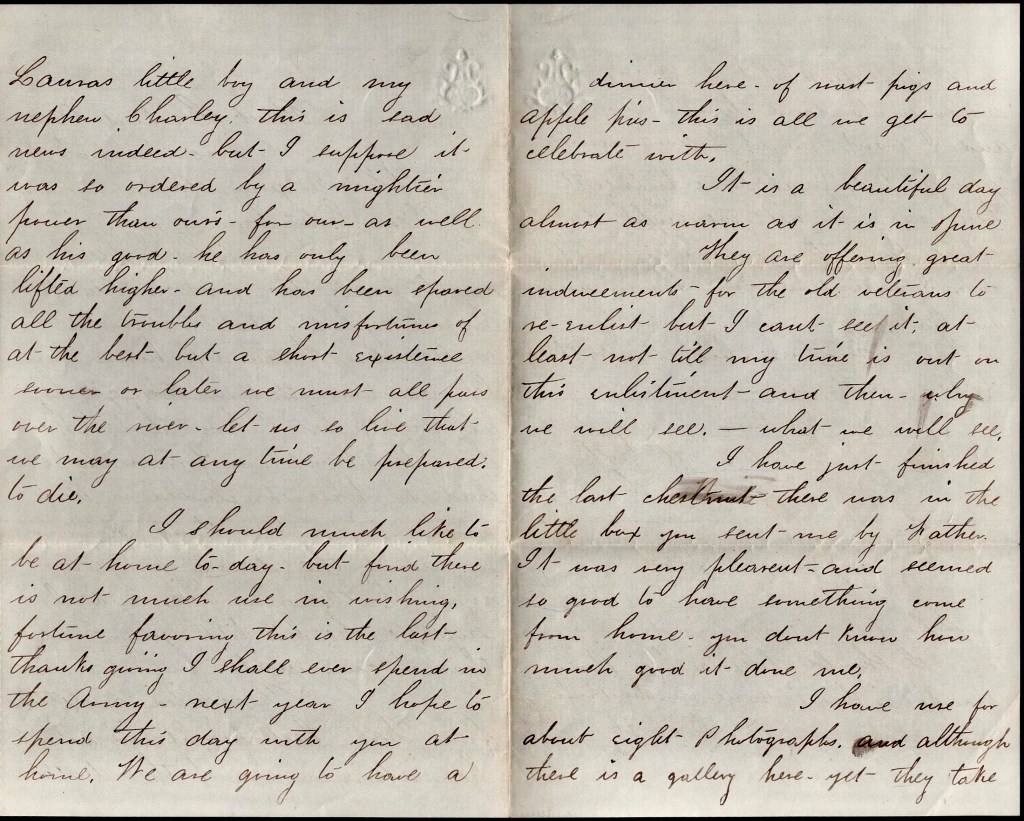 Lauras little boy and my
nephew Charley. this is sad
news indeed - but I suppose it
was so ordered by a mightier
power than ours - for our - as well
as his good - he has only been
lifted higher - and has been spared
all the troubles and misfortunes of
at the best - but a short existence
sooner or later we must all pass
over the river - let us so live that
we may at any time be prepared.
to die.
I should much like to
be at home to-day - but find there
is not much use in wishing,
fortune favoring this is the last
thanks giving I shall ever spend in
the Army - next year I hope to
spend this day with you at
home. We are going to have a
dinner here - of roast pigs and
apple pies - this is all we get to
celebrate with.
It is a beautiful day
almost as warm as it is in June
They are offering great
inducements - for the old veterans to
re-enlist but I cant see it, at
least not till my time is out on
this enlistment - and then - why
we will see. — what we will see.
I have just finished
the last chestnut there was in the
little box you sent me by Father.
It was very pleasent - and seemed
so good to have something come
from home - you dont know how
much good it done me.
I have use for
about eight Photographs. and although
there is a gallery here - yet they take